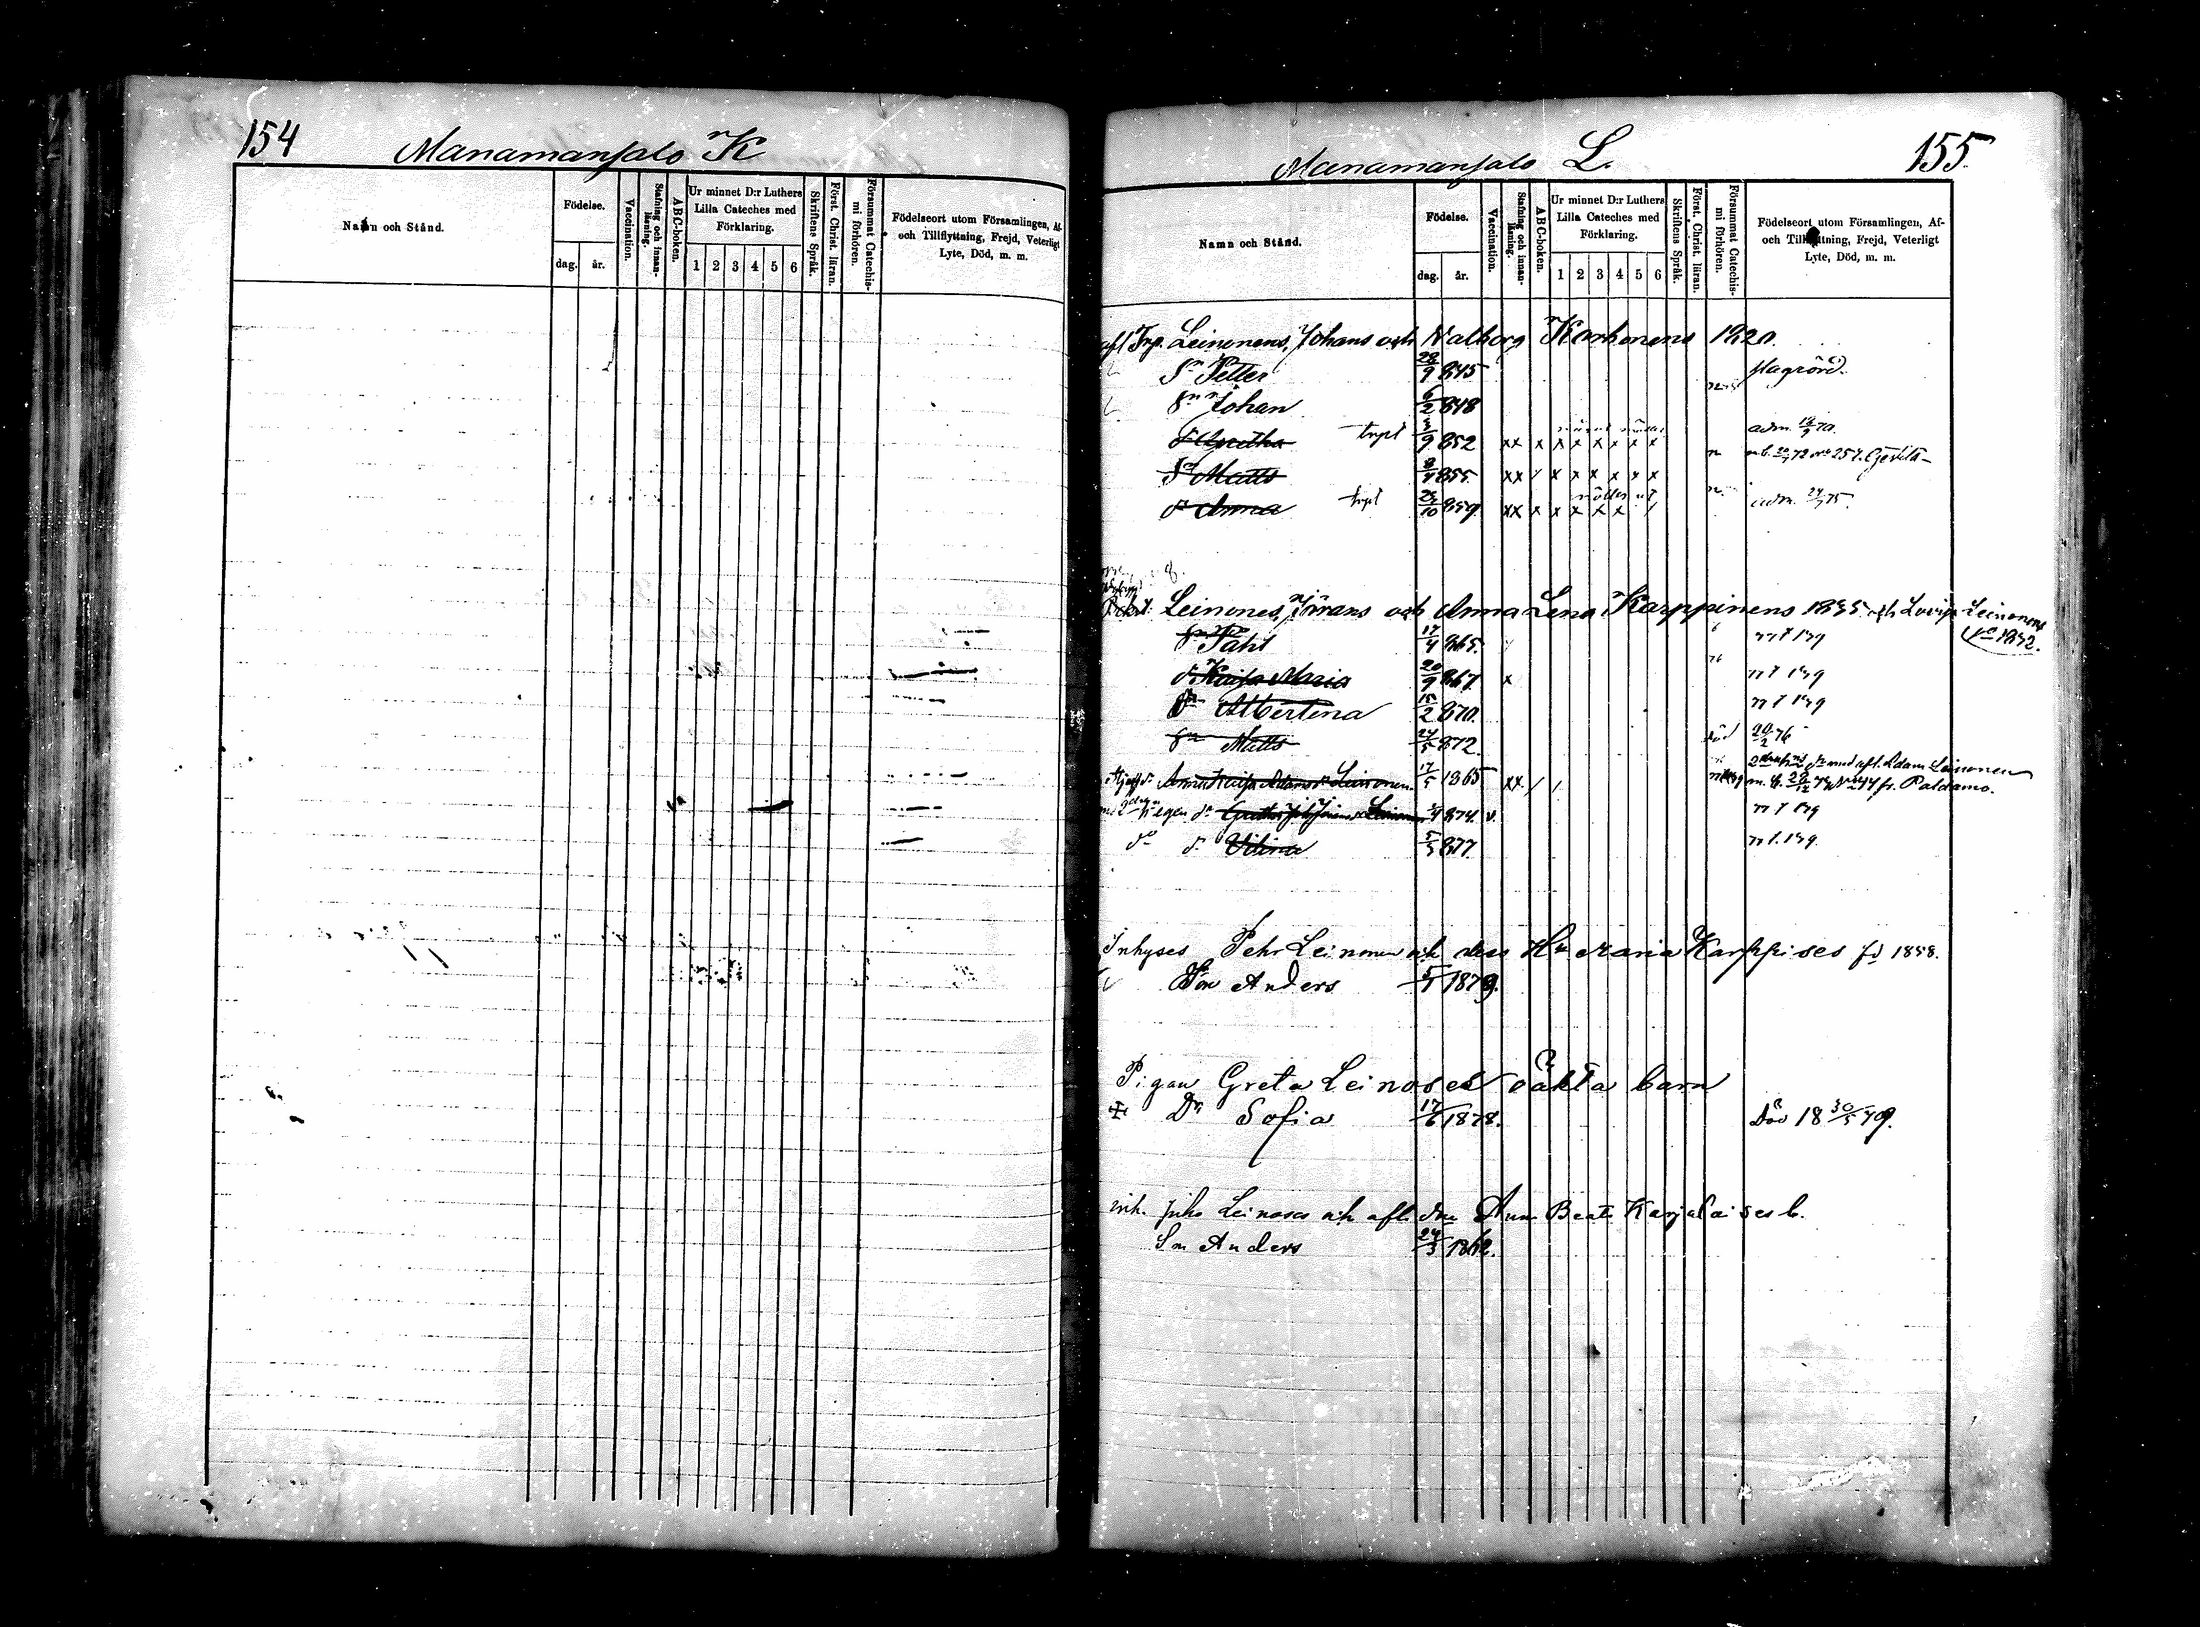 154
Manamansalo K
Namn och Stånd.
Födelse.
dag.
år.
Vaccination.
Stafning och innan-läsning.
ABC-boken.
Ur minnet D:r Luthers
Lilla Cateches med
Förklaring.
1 2 3 4 5 6
Skriftens Språk.
Först. Christ. läran.
Försummat Catechis-
mi förhören.
Födelseort utom Församlingen, Af-
och Tillflyttning, Frejd, Veterligt
Lyte, Död, m. m.
Manamansalo L.
155.
Namn och Stånd.
Födelse.
dag.
år.
Vaccination.
Stafning och innan-läsning.
ABC-boken.
Ur minnet D:r Luthers
Lilla Cateches med
Förklaring.
1 2 3 4 5 6
Skriftens Språk.
Först. Christ. läran.
Försummat Catechis-
mi förhören.
Födelseort utom Församlingen, Af-
och Tillflyttning, Frejd, Veterligt
Lyte, Död, m. m.
Leinonens, Johans och Valborg Korhonens 1820.
Sn Petter 28/9 845
Sn Johan 6/2 848
dr Gretha 9 852 xx x x x x x x x adm. 70.
Sn Matts 855 xx / x x x x x x
dr Anna 25/10 859 xx x x x x x / adm. 75.
Leinonens, Jörans och Anna Lena Karppinens 1835 och Lovisa Leinonens
1832.
Sn Pähl 17/4 865.
dr Kaisa Maria 20/9 867. x
dr Albertina 15/2 870.
Sn Matts 24/5 872. död 20/2 76
Anna Kaisa Adamsdr Leinonen 17/5 1865 xx / / med afl. Adam Leinonen
fr. Paldamo.
egen dr 4 874. v.
do dr Vilina 5/3 877
Inhyses Pehr Leinonen och dess Hu Maria Karppises fd 1858.
Son Anders 5/1 1879.
Pigan Greta Leinoses oäkta barn
Dr Sofia 17/6 1878. Död 18 30/5 79.
inh. Juho Leinoses och afl. Anna Beata Karjalaises b.
Sn Anders 24/3 1862.